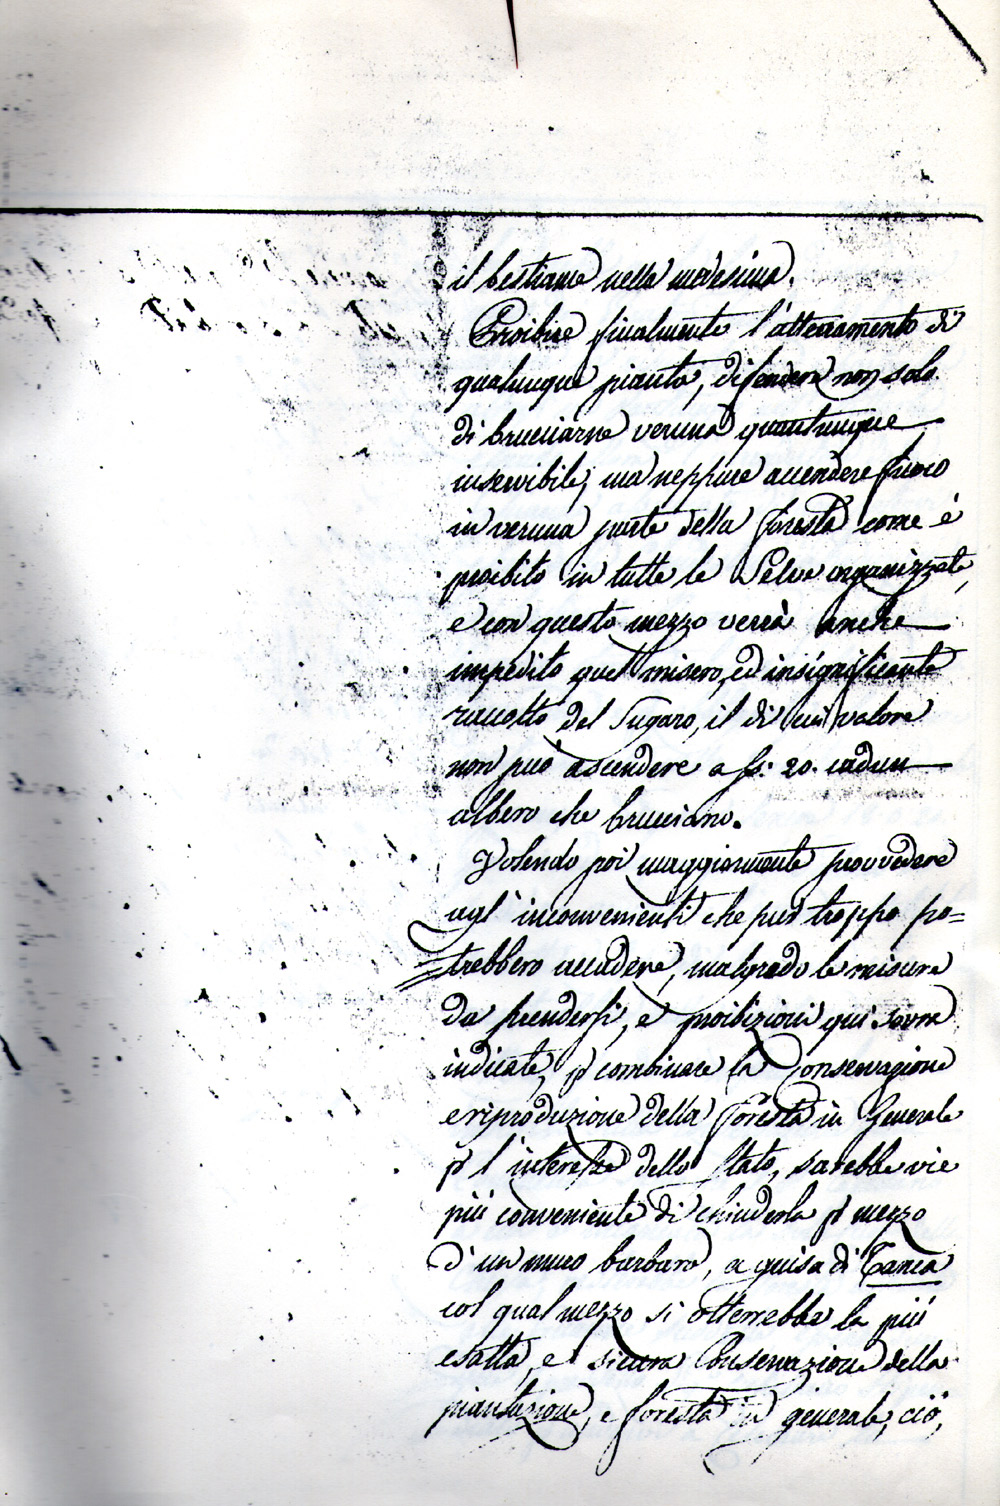 il bestiame nella medesima.
Proibire finalmente l'atterramento di
qualunque pianta, difendere non solo
di bruciarne veruna quantunque
inservibile, ma neppure accendere fuoco
in veruna parte della foresta come è
proibito in tutte le Selve organizzate,
e con questo mezzo verrà anche
impedito quel misero, ed insignificante
raccolto del Sugaro, il di cui valore
non può ascendere a fs: 20. cadun
albero che bruciano.
Volendo poi maggiormente provvedere
agl'inconvenienti che pur troppo po=
trebbero accadere, malgrado le misure
da prendersi, e proibizioni qui sovra
indicate, p combinare la Conservazione
e riproduzione della foresta in Generale
p l'interesse dello Stato, sarebbe vie
più conveniente di chiuderla p mezzo
d'un muro barbaro, a guisa di Tanca
col qual mezzo si otterrebbe la più
esatta, e sicura Conservazione della
piantazione, e foresta in generale, ciò,